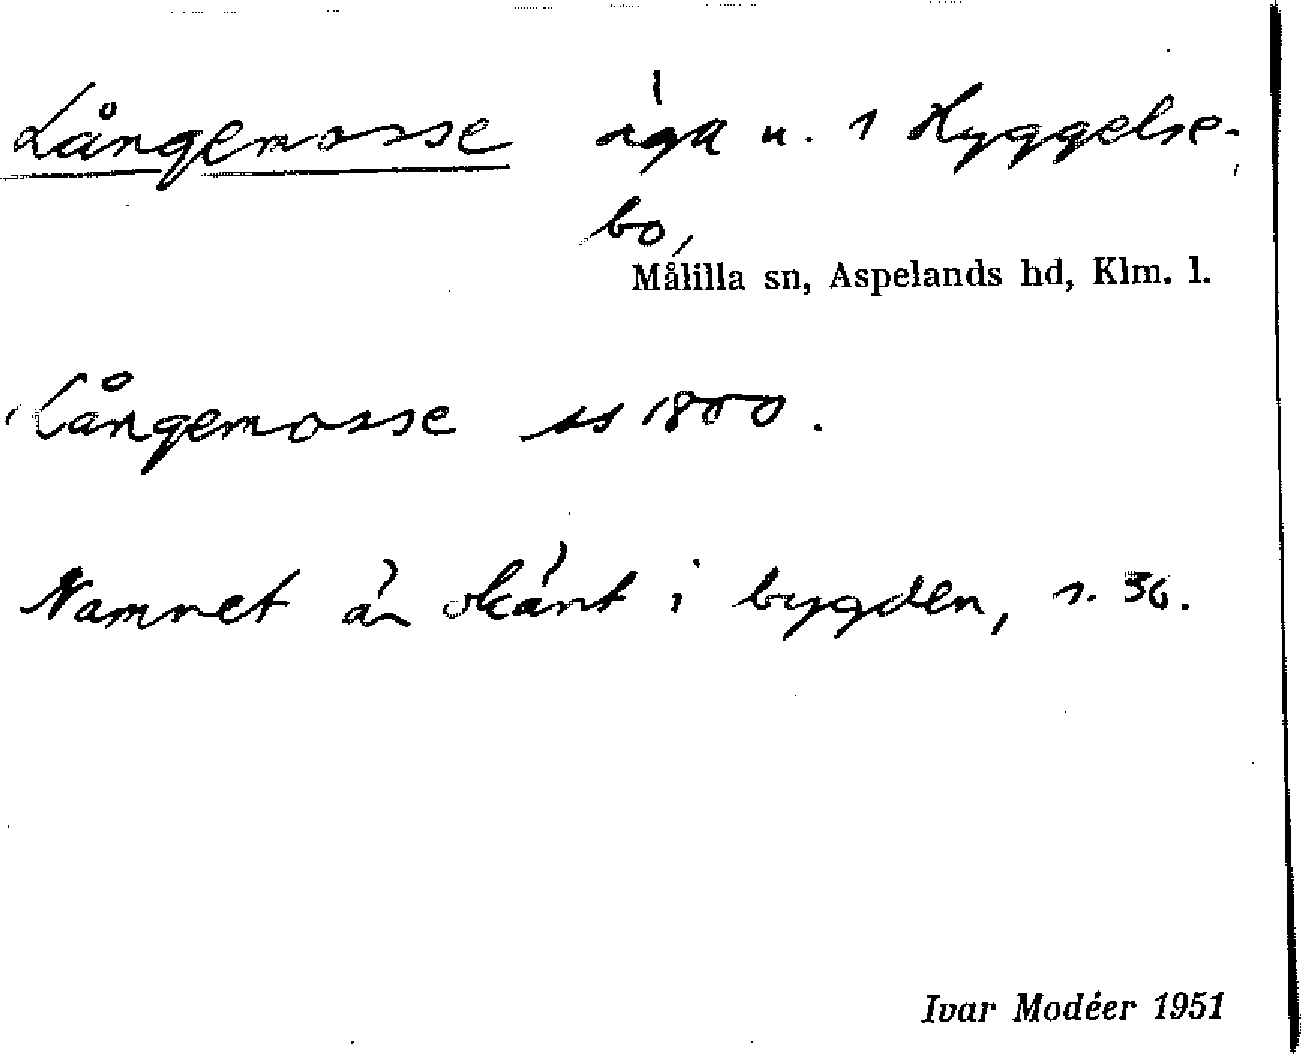 Långemosse äga u. 1 Hyggelse-
bo,
Målilla sn, Aspelands hd, Klm. l.
Långemosse ss 1800.
Namnet är okänt i bygden, s. 36.
Ivar Modéer 1951